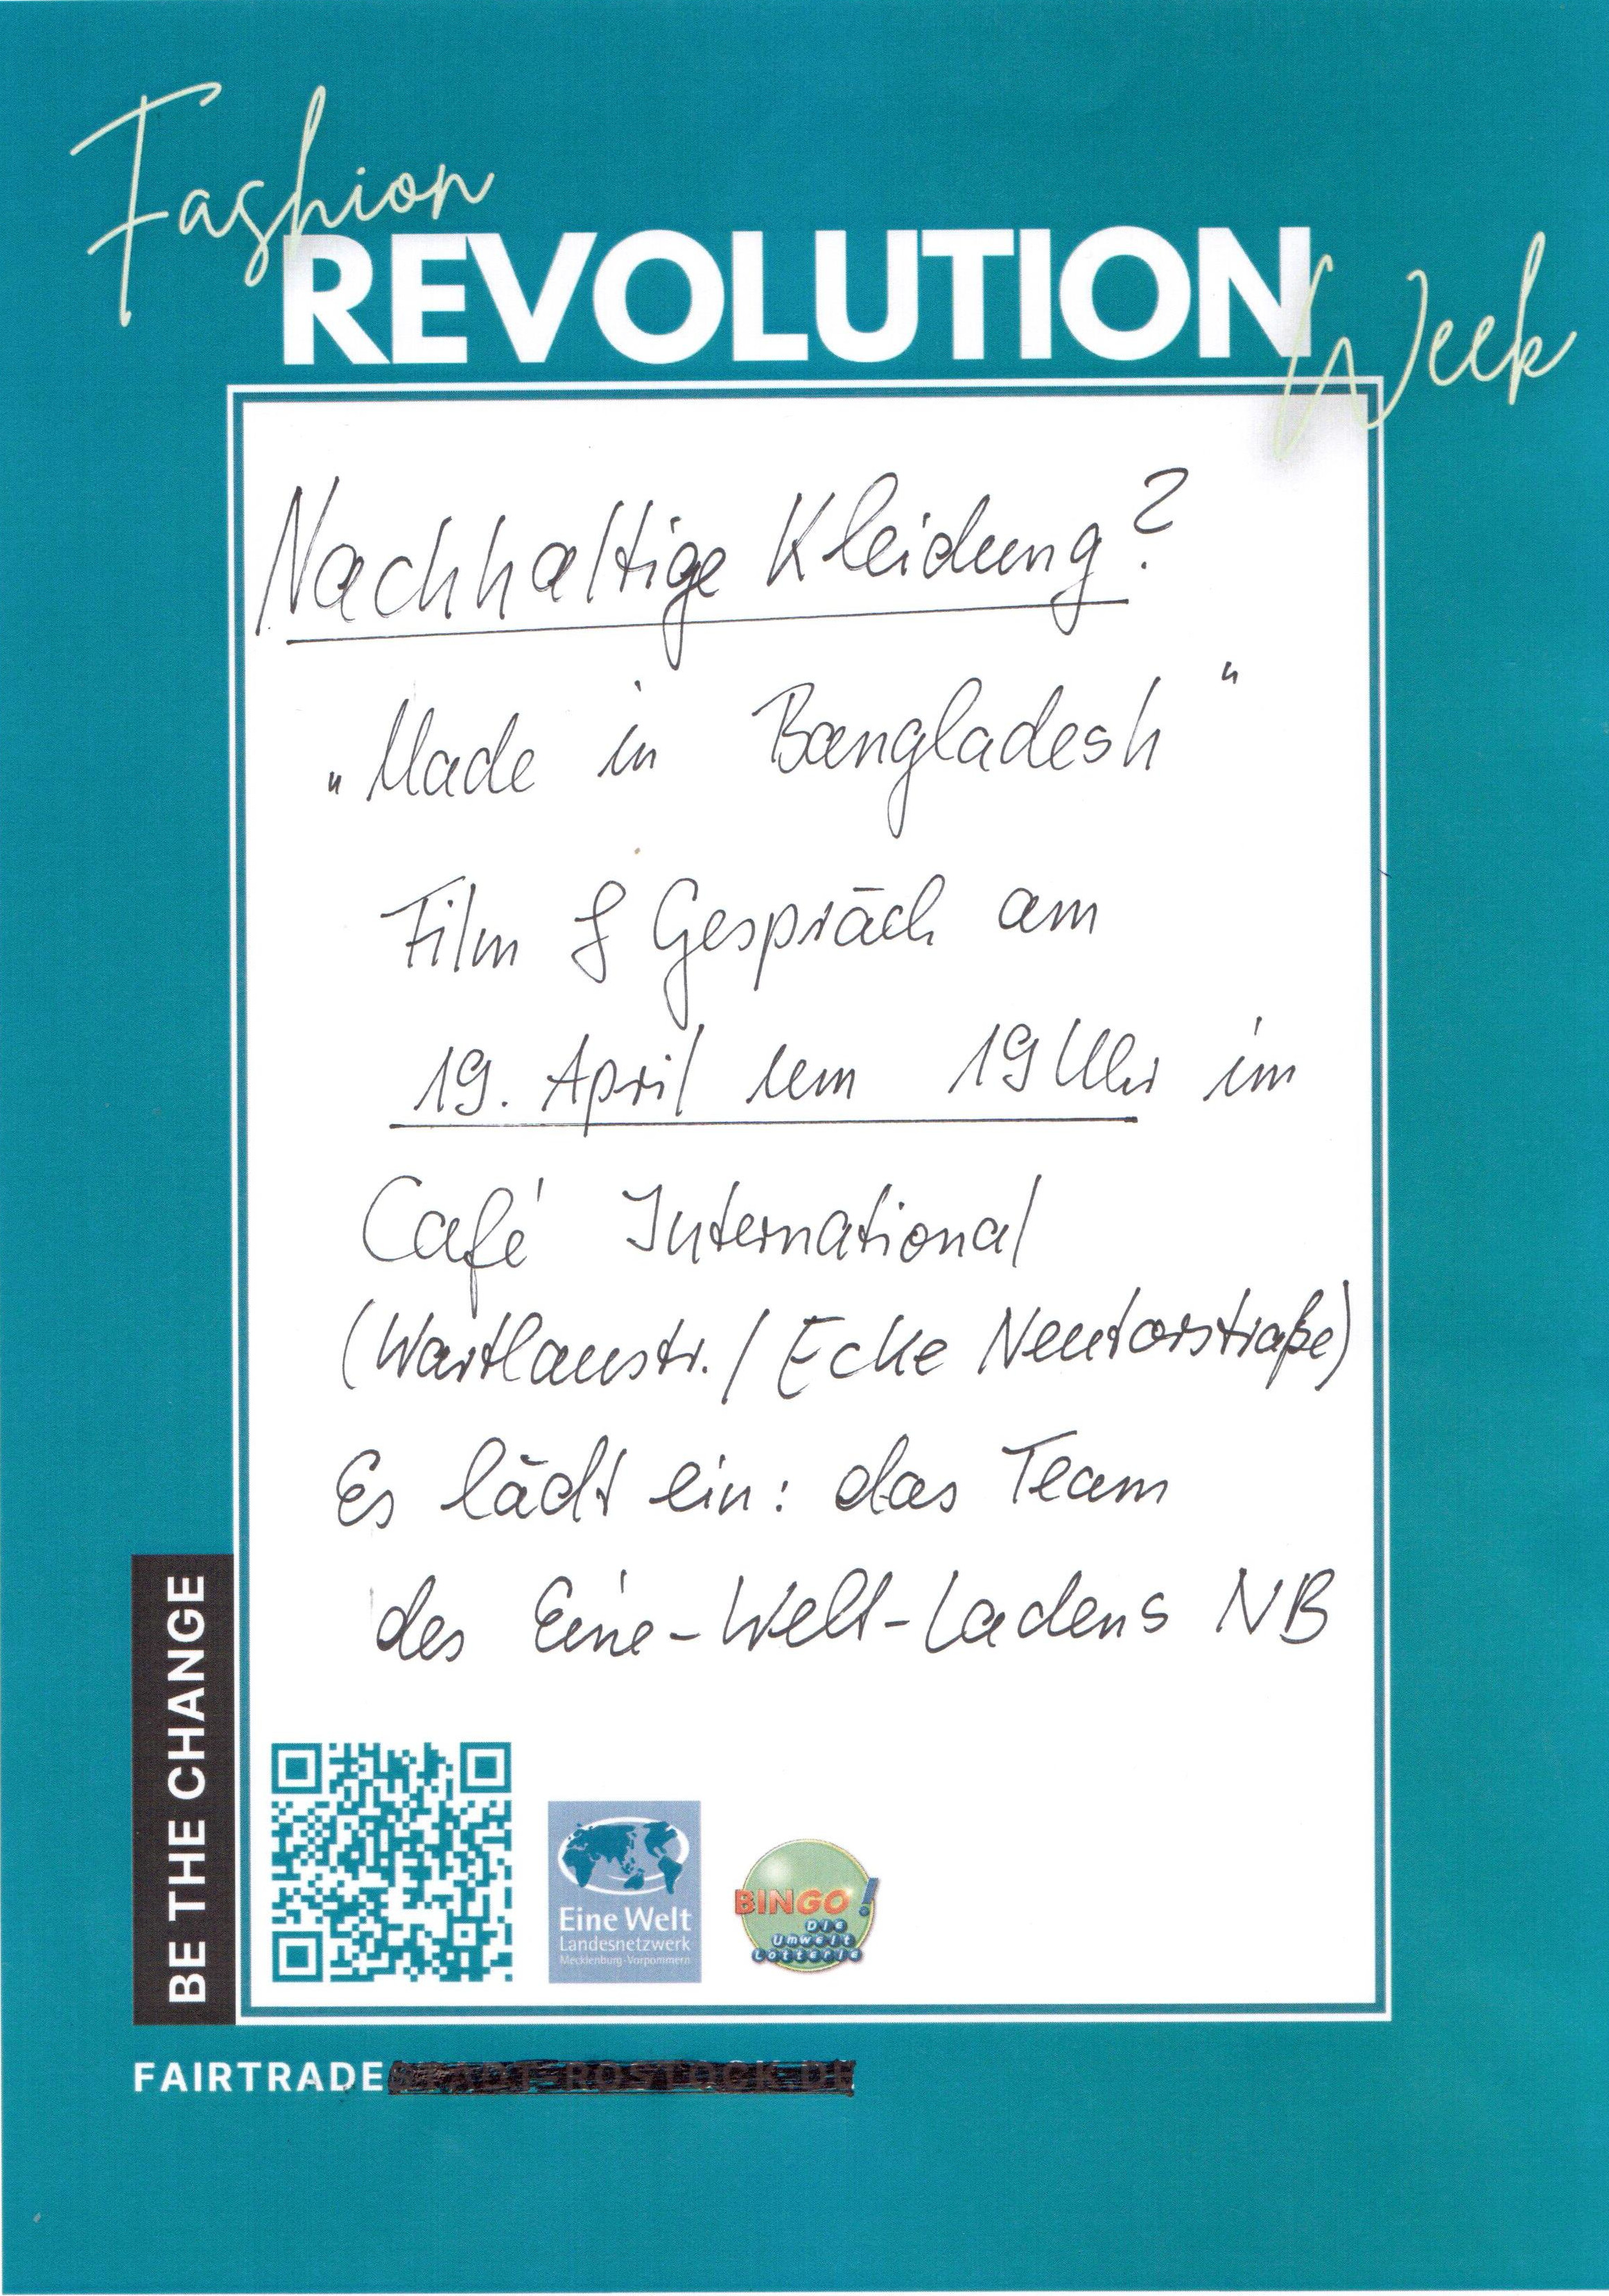 Fashion
REVOLUTION
Week
Nachhaltige Kleidung?
„Made in Bangladesh“
Film & Gespräch am
19. April um 19 Uhr im
Café International
(Wartlaustr. / Ecke Neutorstraße)
Es lädt ein: das Team
des Eine-Welt-Ladens NB
BE THE CHANGE
Eine Welt
Landesnetzwerk
Mecklenburg-Vorpommern
BINGO!
Die
Umwelt
Lotterie
FAIRTRADE